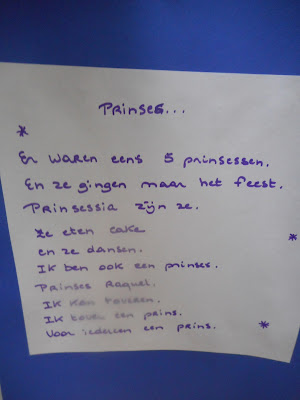 Prinses...
*
Er waren eens 5 prinsessen.
En ze gingen maar het feest.
Prinsessia zijn ze.
Ze eten cake
en ze dansen.
Ik ben ook een prinses.
Prinses Raquel.
Ik kan toveren.
Ik tover een prins.
Voor iedereen een prins.